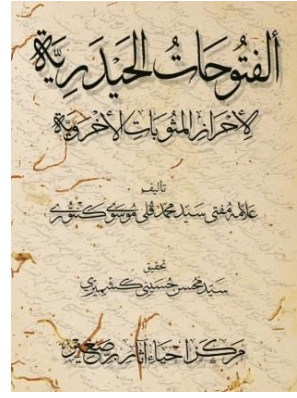 ألفتوحات الحيدرية
لأحراز المثوبات الأخروية
تأليف
علامه مفتی سید محمد قلی موسوی کنتوری
تحقیق
سید محسن حسینی کشمیری
مرکز احیاء آثار برصغیر